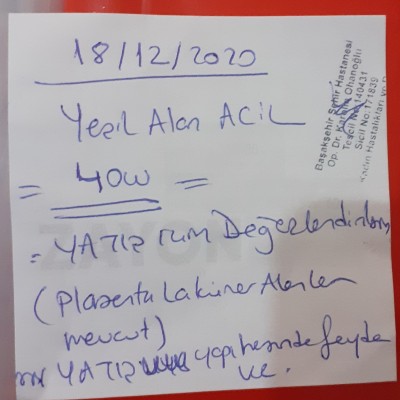 18/12/2020
Yeşil Alan ACİL
= 40w =
= YATIŞ için Değerlendirilmesi
(Plasenta Laküner Alanlar
mevcut)
YATIŞ yapılmasında fayda
var.
Başakşehir Şehir Hastanesi
Op. Dr. Ohanoğlu
Tescil No: 140431
Sicil No: 171839
Kadın Hastalıkları ve D